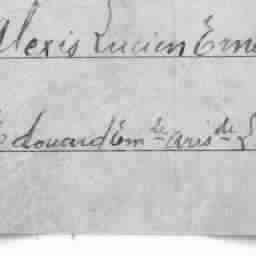 Alexis Lucien Erne
Edouard Em de aris de L